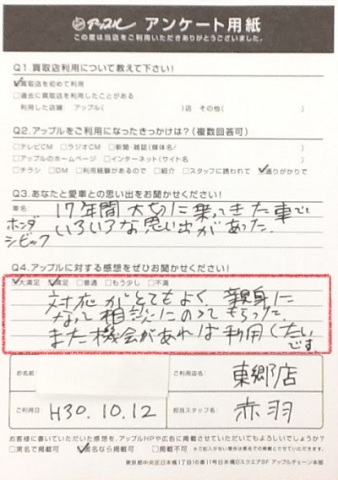 アップル アンケート用紙
この度は当店をご利用いただきありがとうございました。
Q1.買取店利用について教えて下さい!
買取店を初めて利用
□過去に買取店を利用したことがある
利用した店舗: アップル( )店 その他( )
Q2.アップルをご利用になったきっかけは?(複数回答可)
□テレビCM □ラジオCM □新聞・雑誌(媒体名/ )
□アップルのホームページ □インターネット(サイト名 )
□チラシ □DM □利用経験があるので □紹介 □スタッフに誘われて 通りがかりで
Q3.あなたと愛車との思い出をお聞かせください!
車名/
ホンダ
シビック
17年間大切に乗ってきた車で
いろいろな思い出があった。
Q4.アップルに対する感想をぜひお聞かせください!
大満足 満足 □普通 □もう少し □不満
対応がとてもよく、親身に
なって相談にのってもらった。
また機会があれば利用したい
です。
お名前
ご利用店名 東郷店
ご利用日 H30.10.12
担当スタッフ名 赤羽
お客様に書いていただいた感想を、アップルHPや広告に掲載させていただいてもよろしいでしょうか?
□実名で掲載可 匿名なら掲載可
東京都中央区日本橋1丁目16番11号日本橋Dスクエア5F アップルチェーン本部